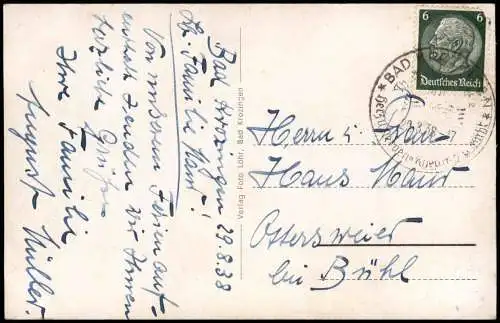 Bad Krozingen 29.8.38
Lb. Familie Maur!
Von unserem Ferienauf-
enthalt senden wir Ihnen
herzliche Grüße
Ihre Familie
August Müller.
Verlag Foto Löhr, Bad Krozingen
6 6
Deutsches Reich
BAD
Herrn u. Frau
Hans Maur
Ottersweier
bei Bühl